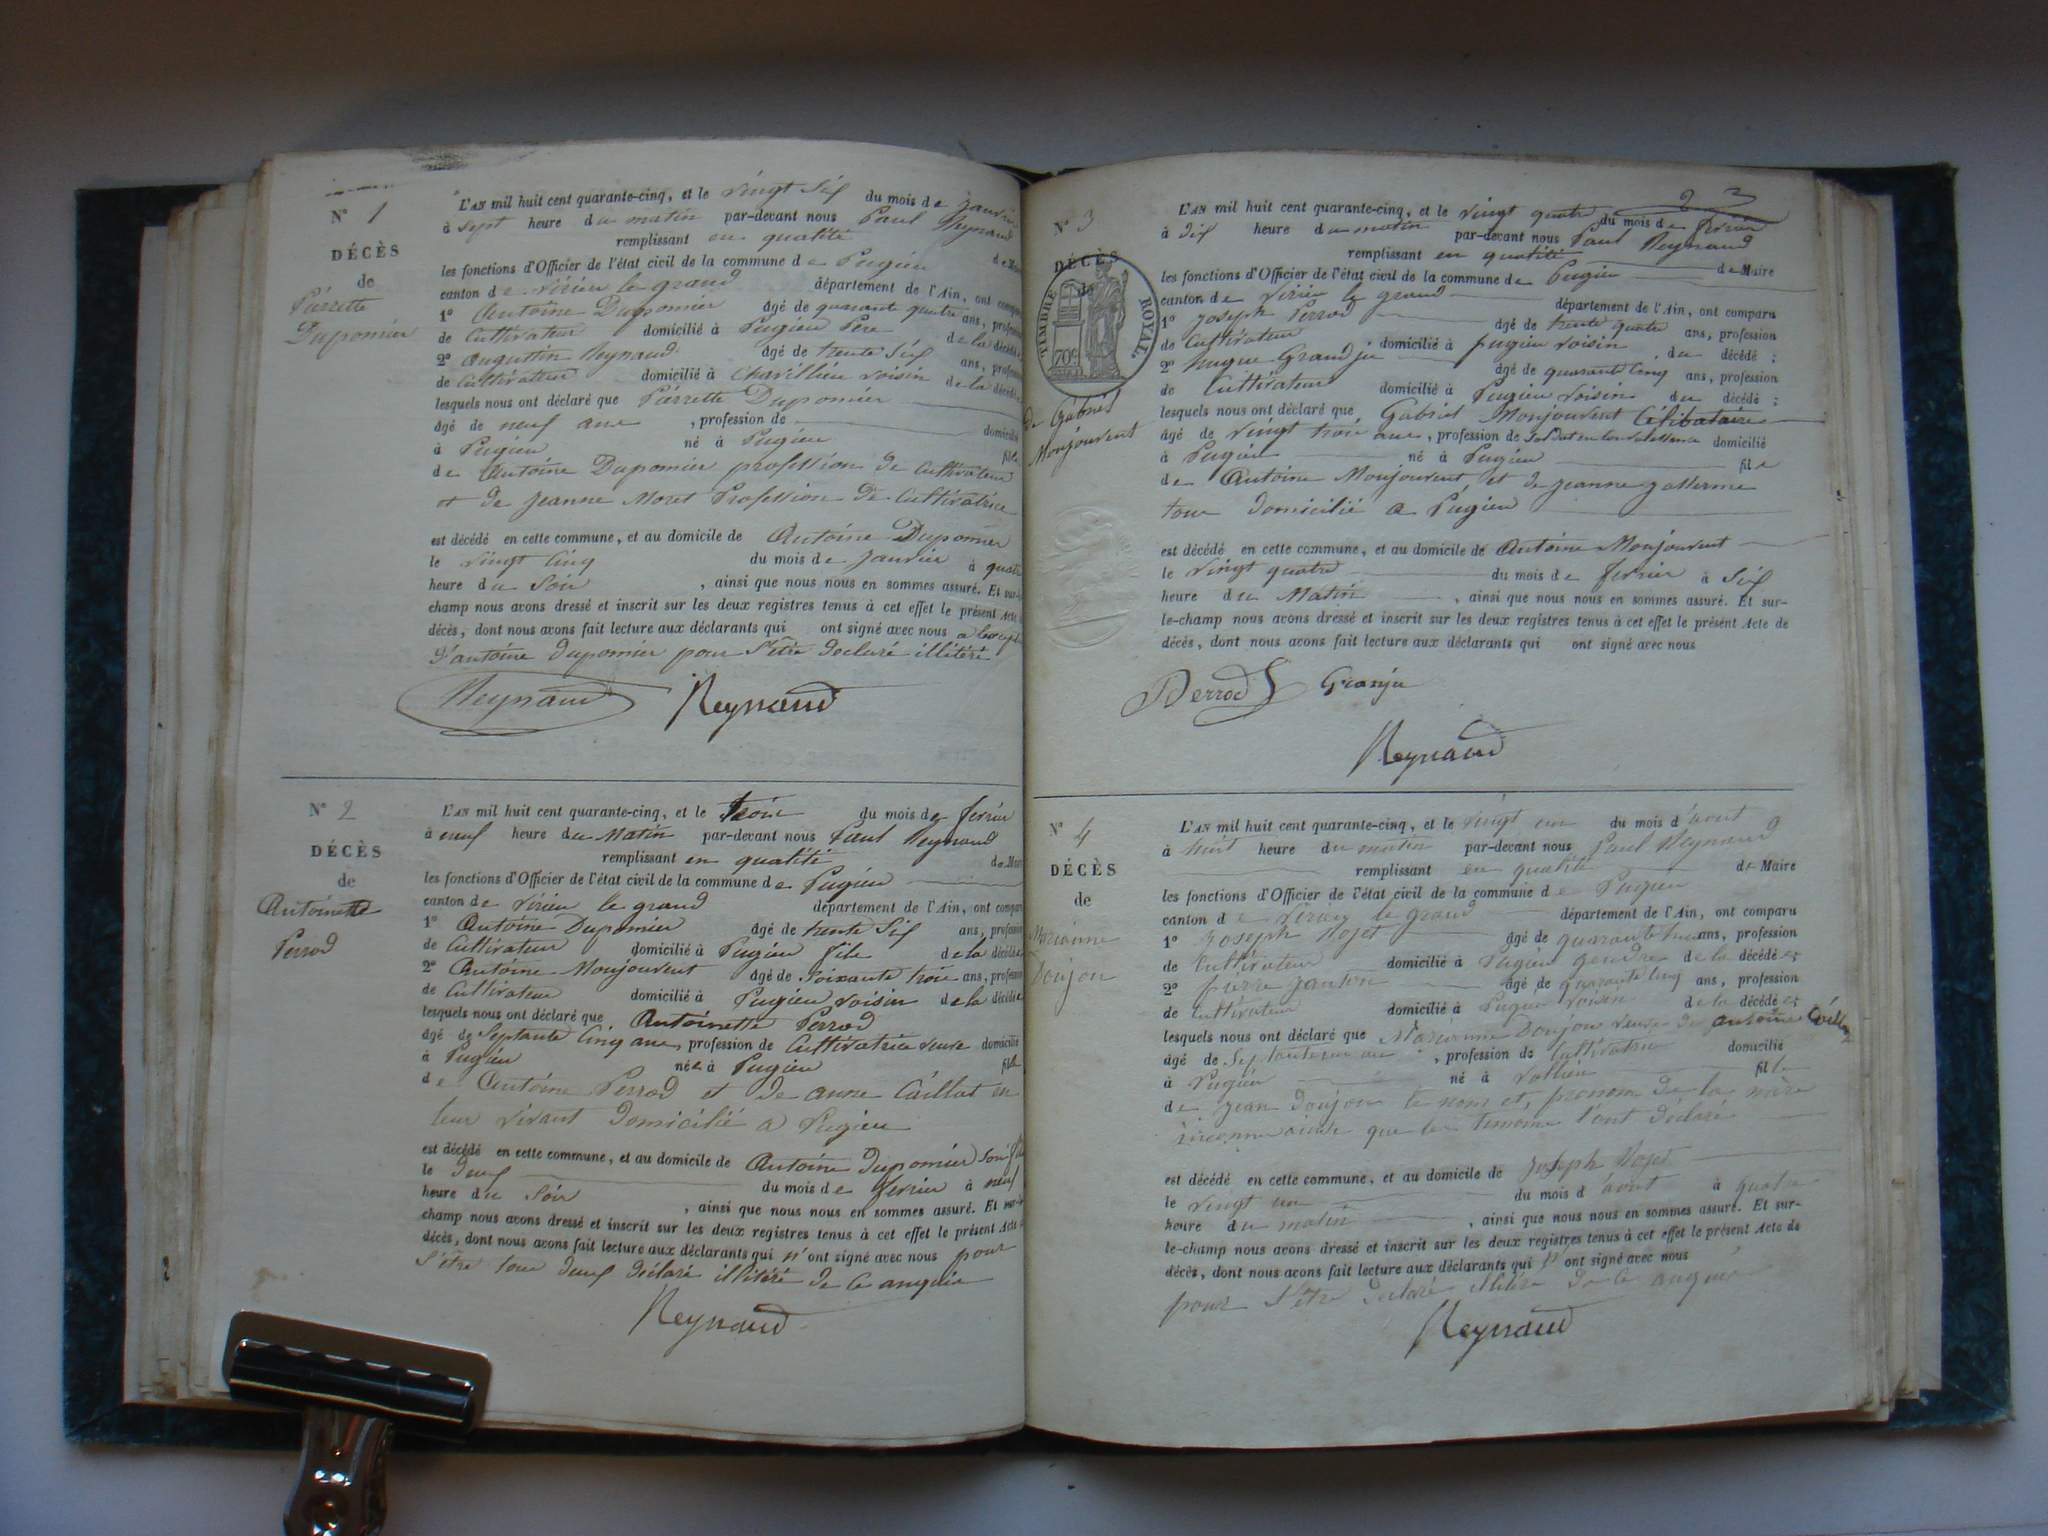 N° 1
DÉCÈS
de
Pierrette
Dupomier
L'AN mil huit cent quarante-cinq, et le vingt six du mois de janvier
à sept heure du matin par-devant nous Paul Reynaud
remplissant en qualité de Maire
les fonctions d'Officier de l'état civil de la commune de Pugieu
canton de virieu le grand département de l'Ain, ont comparu
1° Antoine Dupomier âgé de quarante quatre ans, profession
de Cultivateur domicilié à Pugieu Père de la décédée
2° Augustin Reynaud âgé de trente six ans, profession
de Cultivateur domicilié à Chavillieu voisin de la décédée
lesquels nous ont déclaré que Pierrette Dupomier
âgé de neuf ans , profession de domicilié
à Pugieu né à Pugieu fille
de Antoine Dupomier profession de Cultivateur
et de jeanne Moret Profession de Cultivatrice
est décédé en cette commune, et au domicile de Antoine Dupomier
le vingt cinq du mois de janvier à quatre
heure du Soir , ainsi que nous nous en sommes assuré. Et sur-le-
champ nous avons dressé et inscrit sur les deux registres tenus à cet effet le présent Acte de
décès, dont nous avons fait lecture aux déclarants qui ont signé avec nous
d'antoine dupomier pour s'être declaré illitéré
Reynaud Reynaud
N° 2
DÉCÈS
de
Antoinette
Perrod
L'AN mil huit cent quarante-cinq, et le trois du mois de fevrier
à neuf heure du Matin par-devant nous Paul Reynaud
remplissant en qualité de Maire
les fonctions d'Officier de l'état civil de la commune de Pugieu
canton de virieu le grand département de l'Ain, ont comparu
1° Antoine Dupomier âgé de trente six ans, profession
de Cultivateur domicilié à Pugieu fils de la décédée
2° Antoine Monjouvent âgé de soixante trois ans, profession
de Cultivateur domicilié à Pugieu voisin de la décédée
lesquels nous ont déclaré que Antoinette Perrod
âgé de Septante Cinq ans, profession de Cultivatrice veuve domicilié
à Pugieu née à Pugieu fille
de Antoine Perrod et de anne Caillat en
leur vivant domicilié a Pugieu
est décédé en cette commune, et au domicile de Antoine Dupomier son fils
le deux du mois de fevrier à neuf
heure du Soir , ainsi que nous nous en sommes assuré. Et sur-le-
champ nous avons dressé et inscrit sur les deux registres tenus à cet effet le présent Acte de
décès, dont nous avons fait lecture aux déclarants qui n'ont signé avec nous pour
s'être tous deux déclaré illitéré de ce
Reynaud
N° 3
DÉCÈS
de
TIMBRE ROYAL
70c
de Gabriel
Monjouvent
L'AN mil huit cent quarante-cinq, et le vingt quatre du mois de fevrier
à dix heure du matin par-devant nous Paul Reynaud
remplissant en qualité de Maire
les fonctions d'Officier de l'état civil de la commune de Pugieu
canton de virieu le grand département de l'Ain, ont comparu
1° Joseph Perrod âgé de trente quatre ans, profession
de Cultivateur domicilié à pugieu voisin du décédé ;
2° hugue Granju âgé de quarant cinq ans, profession
de Cultivateur domicilié à Pugieu voisin du décédé ;
lesquels nous ont déclaré que Gabriel Monjouvent Célibataire
âgé de vingt trois ans, profession de domicilié
à Pugieu né à Pugieu fils
de Antoine Monjouvent et de jeanne
tous domicilié a Pugieu
est décédé en cette commune, et au domicile de Antoine Monjouvent
le vingt quatre du mois de fevrier à six
heure du Matin , ainsi que nous nous en sommes assuré. Et sur-
le-champ nous avons dressé et inscrit sur les deux registres tenus à cet effet le présent Acte de
décès, dont nous avons fait lecture aux déclarants qui ont signé avec nous
Perrod Granju
Reynaud
N° 4
DÉCÈS
de
Marianne
Doujon
L'AN mil huit cent quarante-cinq, et le vingt un du mois d'aout
à huit heure du matin par-devant nous Paul Reynaud
remplissant en qualité de Maire
les fonctions d'Officier de l'état civil de la commune de Pugieu
canton de virieu le grand département de l'Ain, ont comparu
1° Joseph âgé de quarante ans, profession
de Cultivateur domicilié à Pugieu gendre de la décédée
2° pierre âgé de quarante cinq ans, profession
de Cultivateur domicilié à Pugieu voisin de la décédée
lesquels nous ont déclaré que Marianne Doujon veuve de antoine
âgé de ans, profession de Cultivatrice domicilié
à Pugieu né à fille
de jean doujon le nom et prenom de la mère
que les temoins l'ont déclaré
est décédé en cette commune, et au domicile de joseph
le vingt un du mois d'aout à quatre
heure du matin , ainsi que nous nous en sommes assuré. Et sur-
le-champ nous avons dressé et inscrit sur les deux registres tenus à cet effet le présent Acte de
décès, dont nous avons fait lecture aux déclarants qui n'ont signé avec nous
pour s'être declaré illitéré de ce
Reynaud